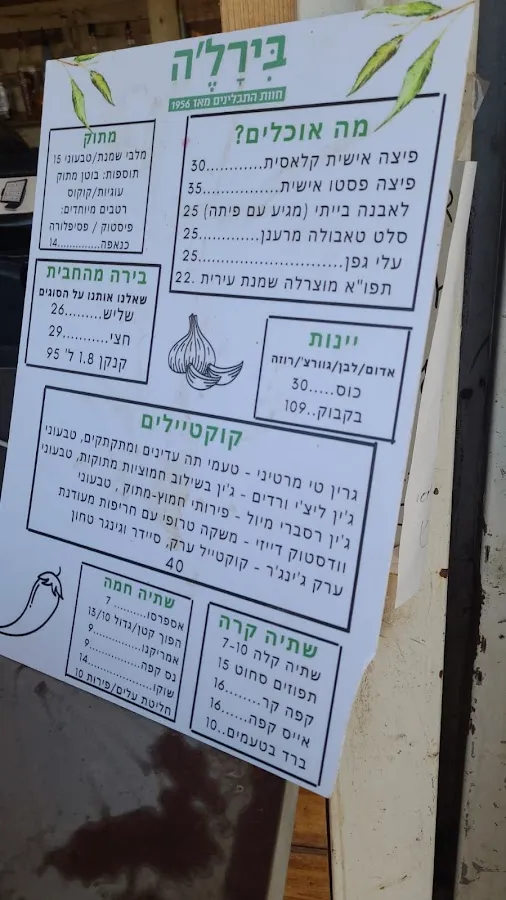 בִּירָלֶ'ה
חוות התבלינים מאז 1956
מה אוכלים?
פיצה אישית קלאסית............30
פיצה פסטו אישית...............35
לאבנה בייתי (מגיע עם פיתה) 25
סלט טאבולה מרענן.............25
עלי גפן............................25
תפו"א מוצרלה שמנת עירית .22
מתוק
מלבי שמנת/טבעוני 15
תוספות: בוטן מתוק
עוגיות/קוקוס
רטבים מיוחדים:
פיסטוק / פסיפלורה
כנאפה.............14
בירה מהחבית
שאלנו אותנו על הסוגים
שליש.........26
חצי...........29
קנקן 1.8 ל' 95
יינות
אדום/לבן/גוורצ'/רוזה
כוס.....30
בקבוק..109
קוקטיילים
גרין טי מרטיני - טעמי תה עדינים ומתקתקים, טבעוני
ג'ין ליצ'י ורדים - ג'ין בשילוב חמוציות מתוקות, טבעוני
ג'ין רסברי מיול - פירותי חמוץ-מתוק , טבעוני
וודסטוק דייזי - משקה טרופי עם חריפות מעודנת
ערק ג'ינג'ר - קוקטייל ערק, סיידר וגינגר טחון
40
שתיה חמה
אספרסו......... 7
הפוך קטן/גדול 13/10
אמריקנו.............9
נס קפה..............9
שוקו.................14
חליטת עלים/פירות 10
שתיה קרה
שתיה קלה 7-10
תפוזים סחוט 15
קפה קר........16
אייס קפה......16
ברד בטעמים..10